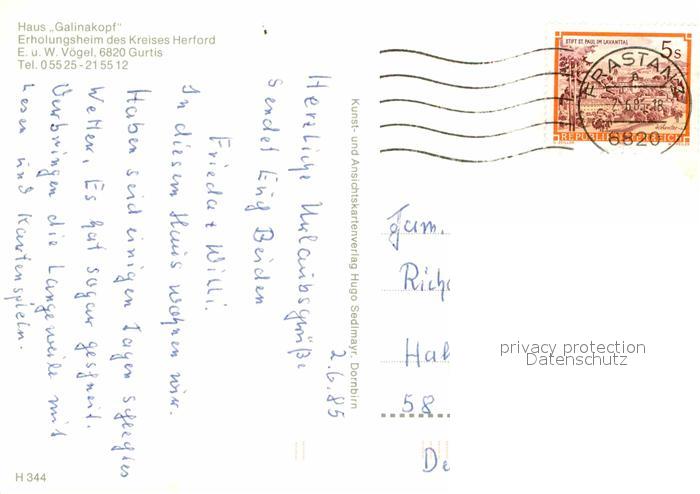 Haus „Galinakopf"
Erholungsheim des Kreises Herford
E. u. W. Vögel, 6820 Gurtis
Tel. 0 55 25 - 21 55 12
2.6.85
Herzliche Urlaubsgrüße
sendet Euch Beiden
Frieda + Willi.
In diesem Haus wohnen wir.
Haben seid einigen Tagen schlegtes
Wetter. Es hat sogar geschneit.
Verbringen die Langeweile mit
Lesen und Kartenspielen.
H 344
Kunst- und Ansichtskartenverlag Hugo Sedlmayr, Dornbirn
STIFT ST. PAUL IM LAVANTTAL
5s
REPUBLIK ÖSTERREICH
FRASTANZ
6820
Fam.
Rich
Hal
58
De
privacy protection
Datenschutz